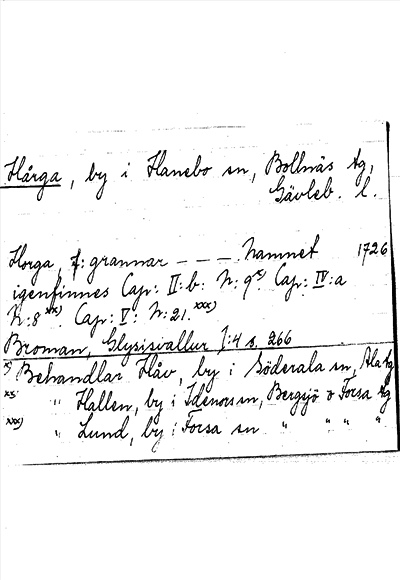 Hårga, by i Hanebo sn, Bollnäs tg,
Gävleb. l.
Horga, f: grannar - - - Namnet 1726
igenfinnes Cap: II: b: N: 9 x) Cap: IV: a
N: 8 xx) Cap: V: N: 21. xxx)
Broman, Glysisvallur I: 4 s. 266
x) Behandlar Håv, by i Söderala sn, Ala tg
xx) " Hallen, by i Idenors sn, Bergsjö o Forsa tg
xxx) " Lund, by i Forsa sn " " " "